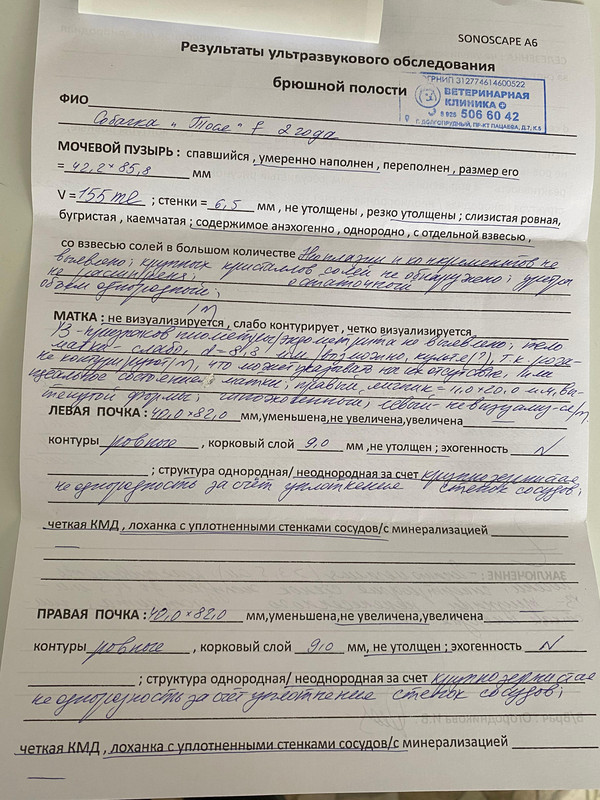 SONOSCAPE A6
Результаты ультразвукового обследования
брюшной полости
ОГРНИП 312774614600522
ВЕТЕРИНАРНАЯ
КЛИНИКА
8 925 506 60 42
Г. ДОЛГОПРУДНЫЙ, ПР-КТ ПАЦАЕВА, Д.7, К.5
ФИО
Собачка „ Тося “ F 2 года
МОЧЕВОЙ ПУЗЫРЬ : спавшийся , умеренно наполнен , переполнен , размер его
= 42,2 × 85,8 мм
V = 155 ml ; стенки = 6,5 мм , не утолщены , резко утолщены ; слизистая ровная,
бугристая , каемчатая ; содержимое анэхогенно , однородно , с отдельной взвесью ,
со взвесью солей в большом количестве Неоплазии и конкрементов не
выявлено; крупных кристаллов солей не обнаружено; уретра
не расширена; остаточный
объем однородный;
МАТКА : не визуализируется , слабо контурирует , четко визуализируется
УЗ-признаков пиометры/эндометрита не выявлено; тело
матки - слабо, d = 8,8 мм /возможно, культя(?), т.к. рога-
не контурируют/m, что может указывать на их отсутствие, или
идеальное состояние матки; правый яичник = 11,0×20,0 мм, вы-
тянутой формы; гипоэхогенный, левый - не визуализ-ся/m.
ЛЕВАЯ ПОЧКА : 42,0 × 82,0 мм,уменьшена,не увеличена,увеличена
контуры ровные , корковый слой 9,0 мм ,не утолщен ; эхогенность N
; структура однородная/ неоднородная за счет крупнозернистая
неоднородность за счёт уплотнение стенок сосудов;
четкая КМД , лоханка с уплотненными стенками сосудов/с минерализацией
ПРАВАЯ ПОЧКА : 42,0 × 82,0 мм,уменьшена,не увеличена,увеличена
контуры ровные , корковый слой 9,0 мм, не утолщен ; эхогенность N
; структура однородная/ неоднородная за счет крупнозернистая
неоднородность за счёт уплотнение стенок сосудов;
четкая КМД , лоханка с уплотненными стенками сосудов/с минерализацией